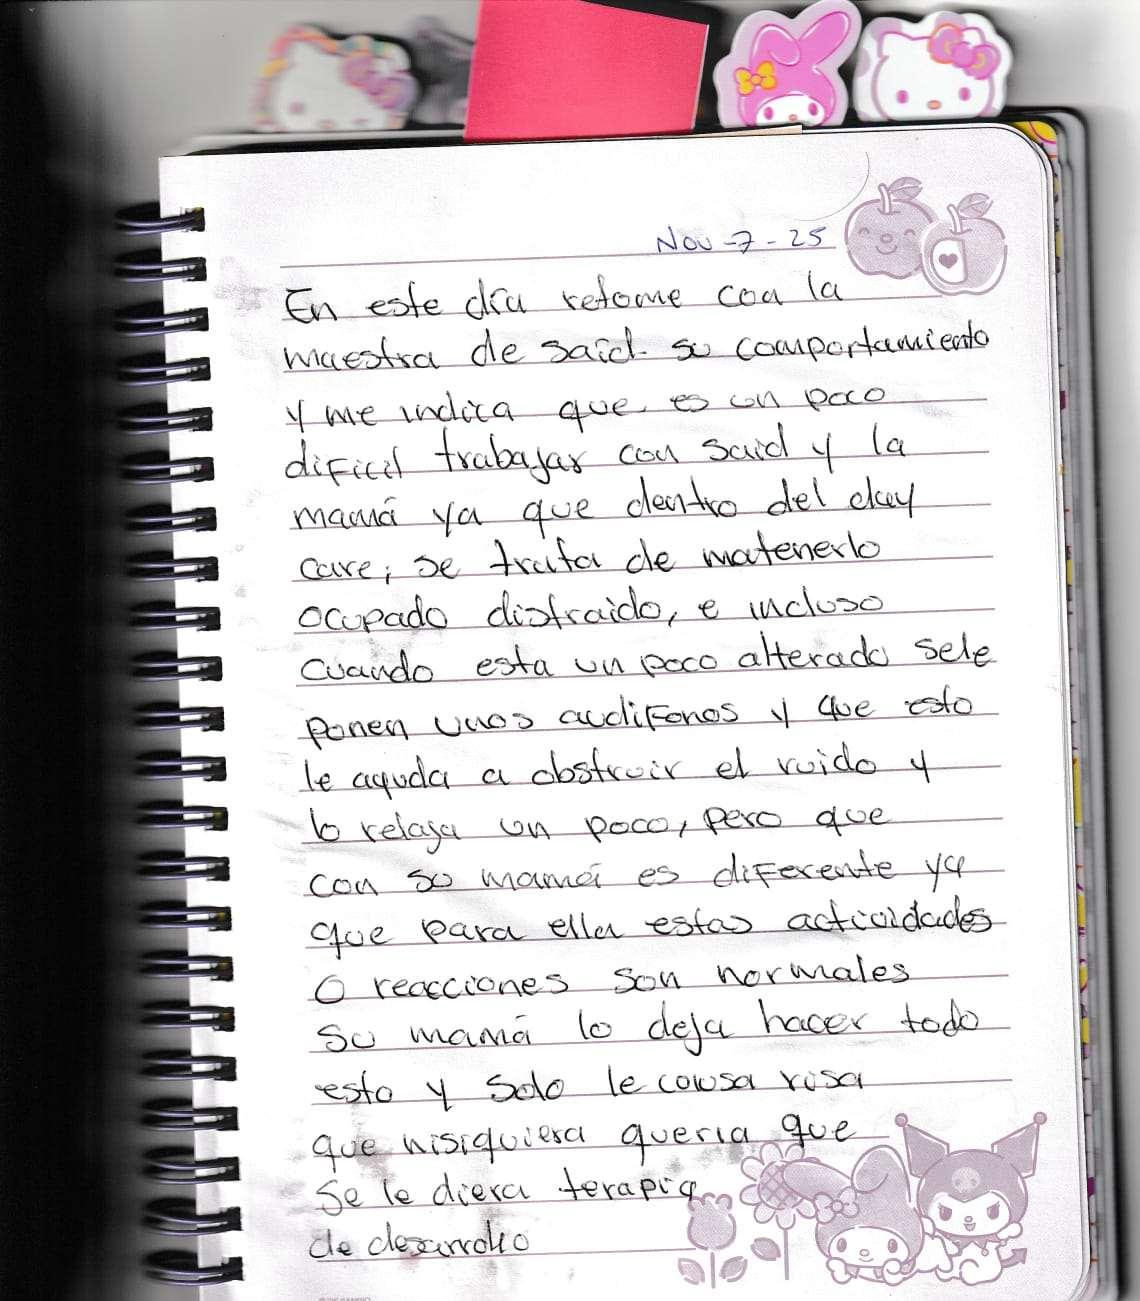 Nov-7-25
En este día retome con la
maestra de said. su comportamiento
y me indica que es un poco
dificil trabajar con said y la
mamá ya que dentro del day
care; se trata de matenerlo
ocupado distraido, e incluso
cuando esta un poco alterado sele
ponen unos audifonos y que esto
le ayuda a obstruir el ruido y
lo relaja un poco, pero que
con su mamá es diferente ya
que para ella estas actividades
o reacciones son normales
su mamá lo deja hacer todo
esto y solo le causa risa
que nisiquiera queria que
se le diera terapia
de desarrollo